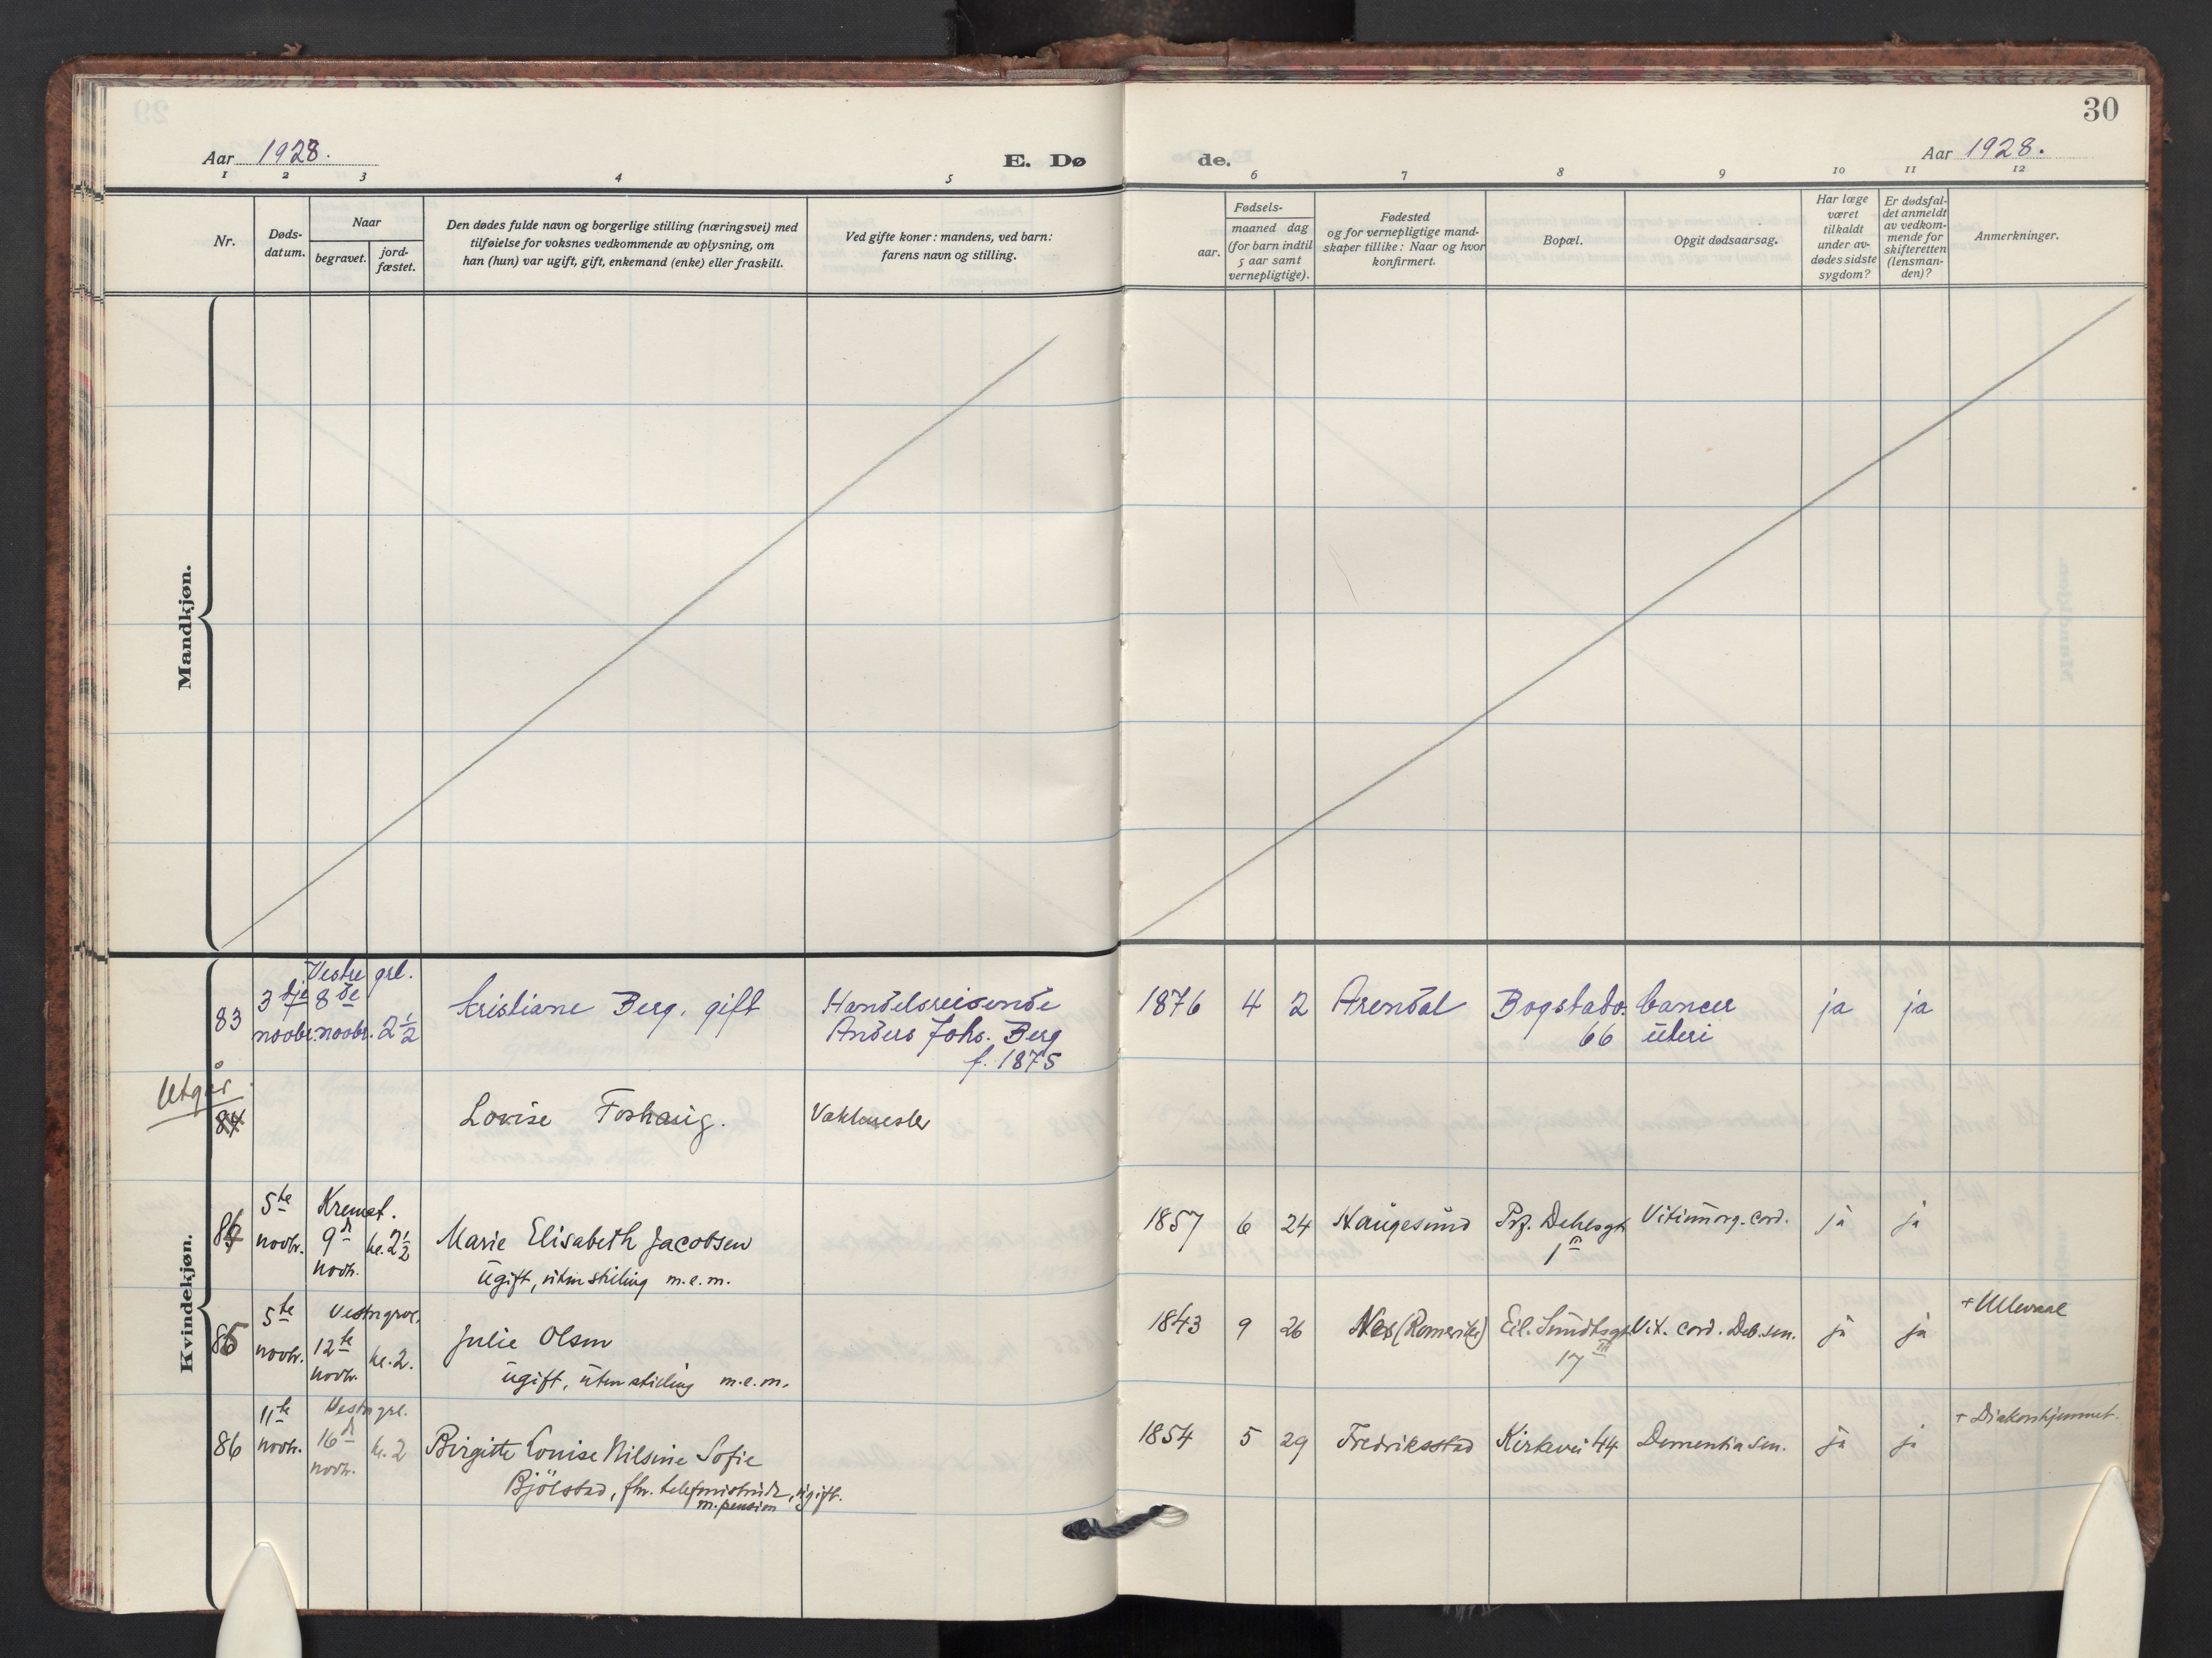 30
Aar 1928.
E. Dø
de.
Aar 1928.
1 2 3 4 5 6 7 8 9 10 11 12
Nr.
Døds-
datum.
Naar
begravet.
jord-
fæstet.
Den dødes fulde navn og borgerlige stilling (næringsvei) med
tilføielse for voksnes vedkommende av oplysning, om
han (hun) var ugift, gift, enkemand (enke) eller fraskilt.
Ved gifte koner: mandens, ved barn:
farens navn og stilling.
Fødsels-
aar.
maaned dag
(for barn indtil
5 aar samt
vernepligtige).
Fødested
og for vernepligtige mand-
skaper tillike: Naar og hvor
konfirmert.
Bopæl.
Opgit dødsaarsag.
Har læge
været
tilkaldt
under av-
dødes sidste
sygdom?
Er dødsfal-
det anmeldt
av vedkom-
mende for
skifteretten
(lensman-
den)?
Anmerkninger.
Mandkjøn.
Kvindekjøn.
Vestre grl.
83 3dje novbr. 8de novbr. 2 1/2 Kristiane Berg, gift
Handelsreisende
Anders Johs. Berg
f. 1875
1876 4 2 Arendal Bogstadv. 66 Cancer uteri ja ja
Utgår
84 Lovise Foshaug. Vaktmester
84 5te novbr. Kremat. 9d novb. kl. 2 1/2 Marie Elisabeth Jacobsen
ugift, uten stilling m.e.m.
1857 6 24 Haugesund Prf. Dahlsgt. 1 III Vitium org. cord. ja ja
85 5te novbr. Vestre grvl. 12te novbr. kl. 2. Julie Olsen
ugift, uten stilling m.e.m.
1843 9 26 Nes (Romerike) Eil. Sundtsgt. 17 III Vit. cord. Deb. sen. ja ja + Ullevaal
86 11te novbr. Vestre grl. 16d novbr. kl. 2 Birgitte Louise Nilsine Sofie
Bjölstad, fhv. telefonistinde, ugift.
m. pension
1854 5 29 Fredriksstad Kirkevei 44 Dementia sen. ja ja + Diakonhjemmet.